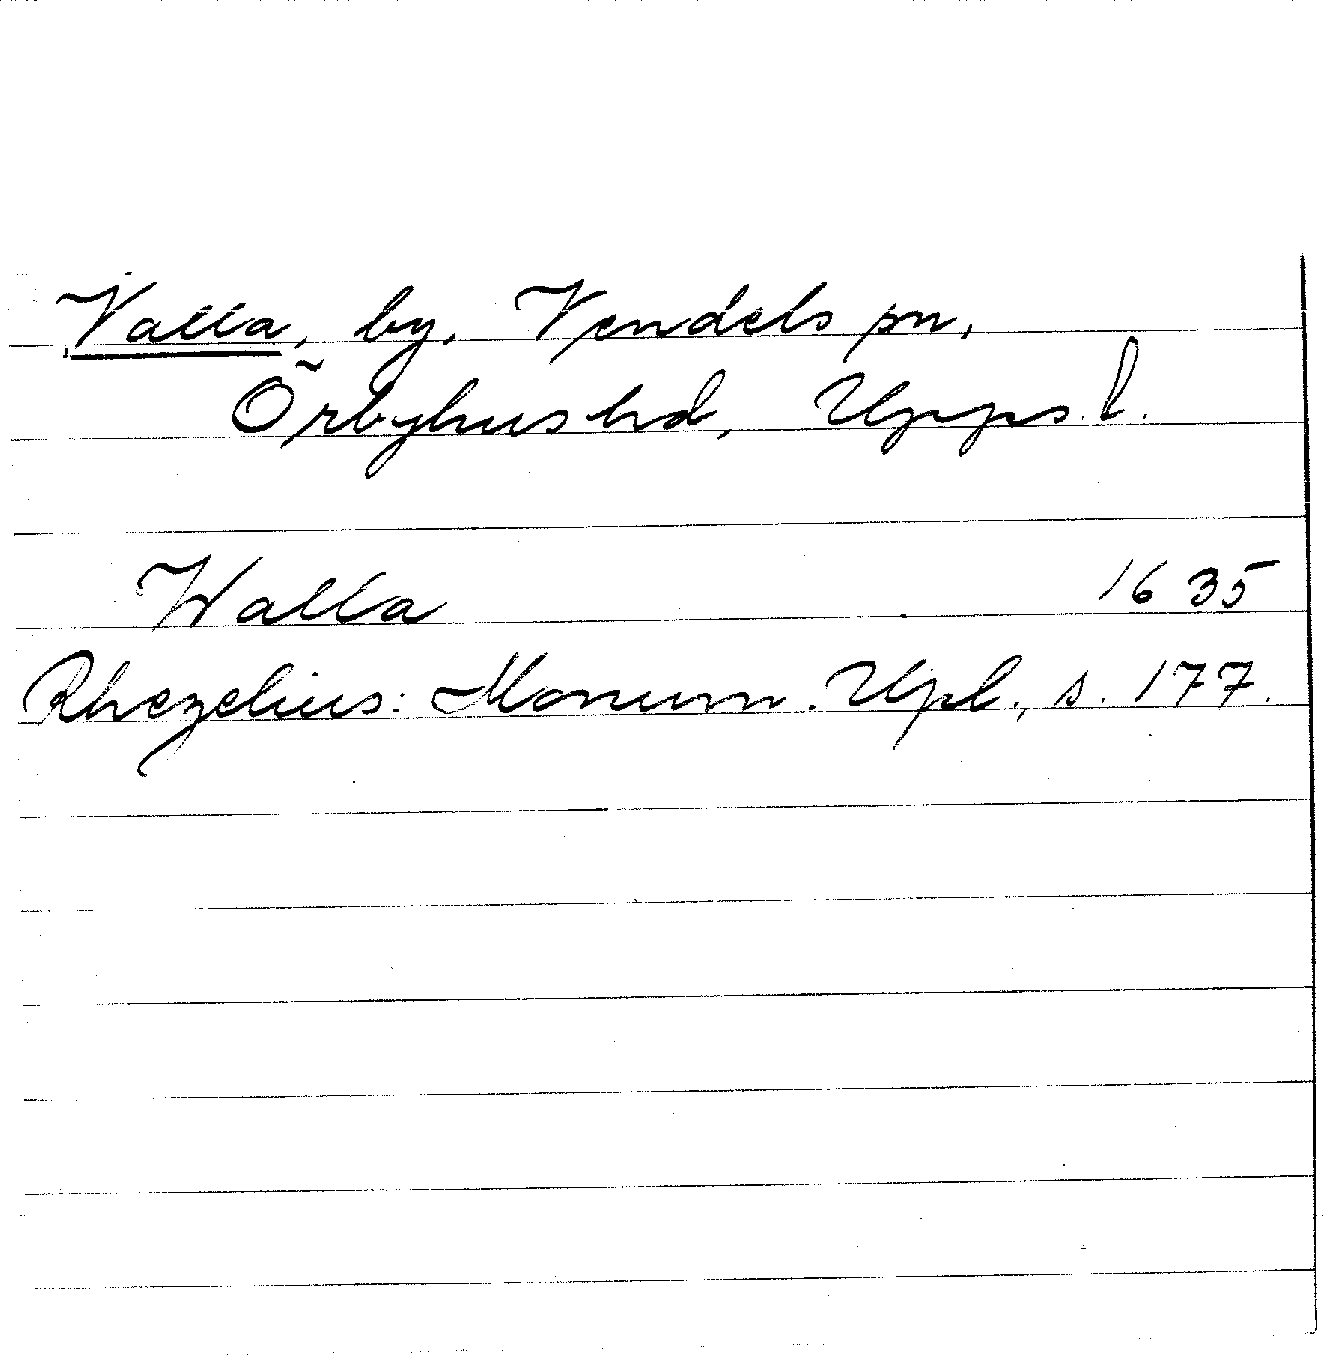 Valla, by, Vendels sn,
Örbyhus hd, Upps. l.
Walla 1635
Rhezelius: Monum. Upl., s. 177.